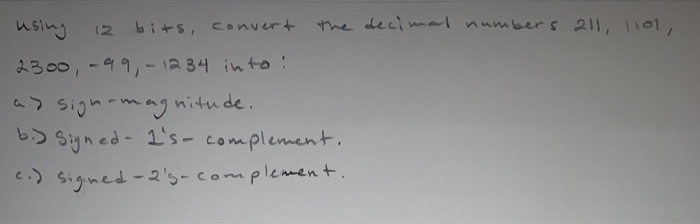 using 12 bits, convert the decimal numbers 211, 1101,
2300, -99, -1234 into:
a.) sign-magnitude.
b.) Signed- 1's- complement.
c.) signed -2's- complement.